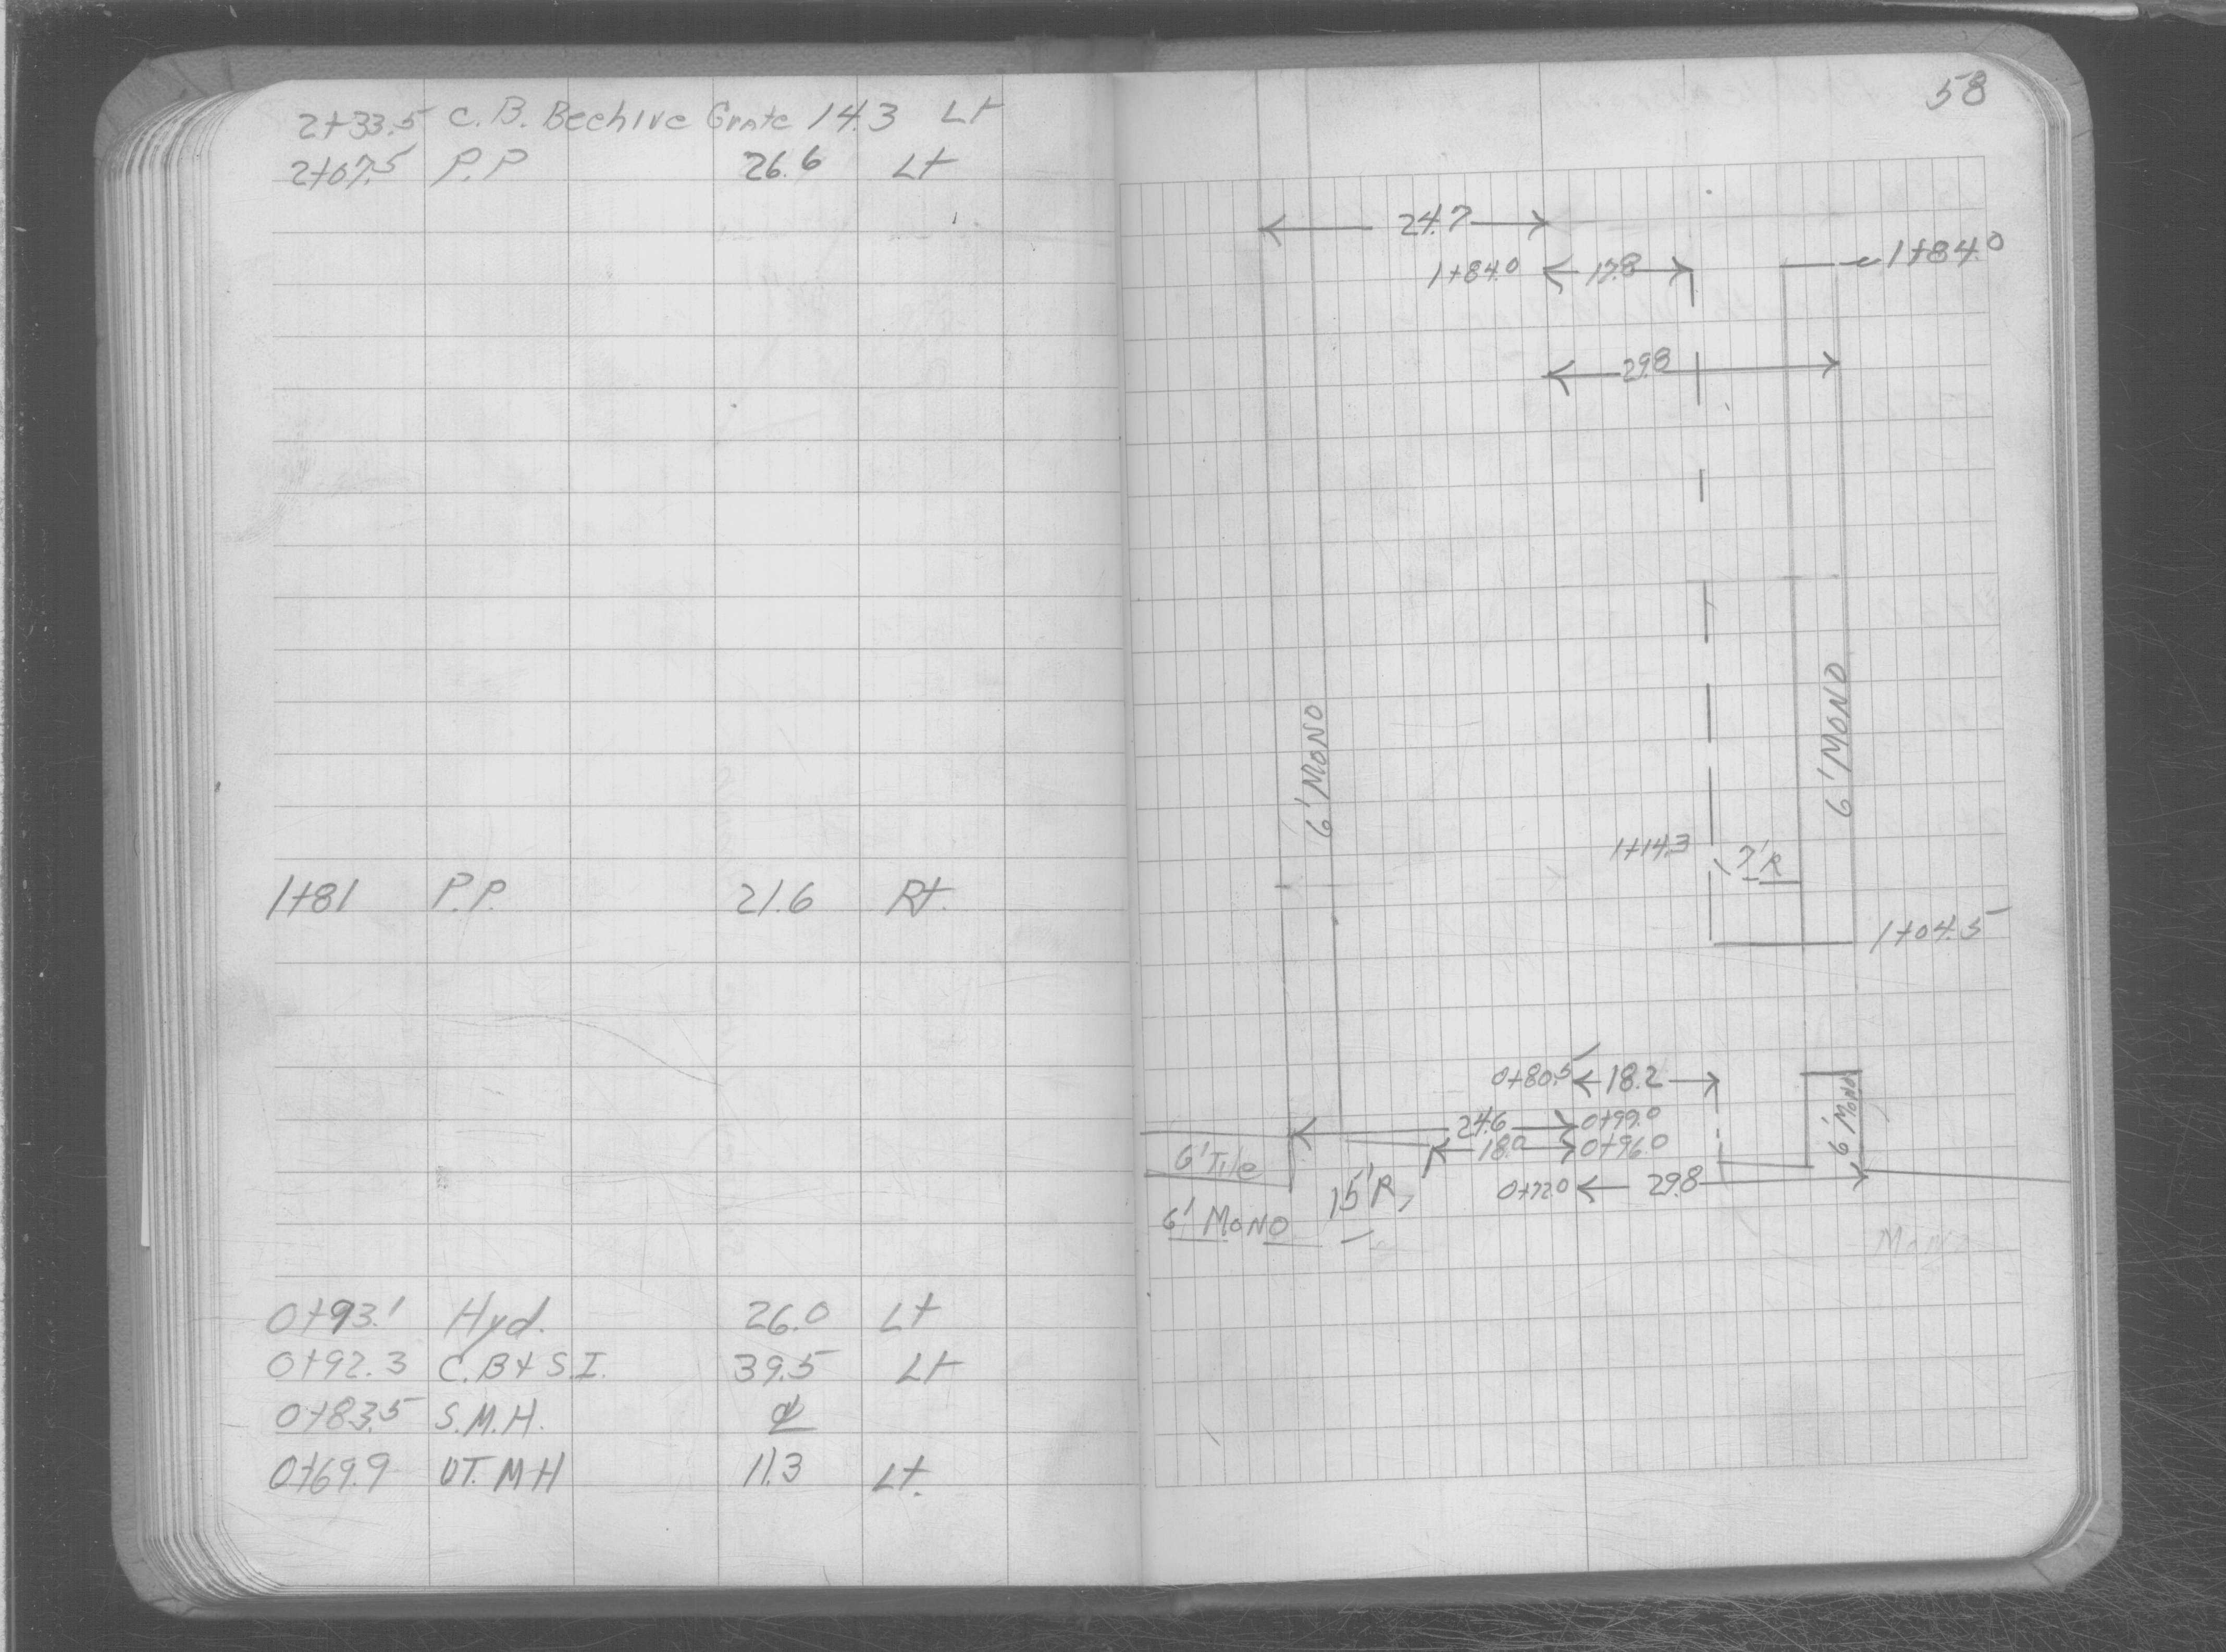 2+33.5 C.B. Beehive Grate 14.3 Lt
2+07.5 P.P 26.6 Lt
1+81 P.P. 21.6 Rt.
0+93.1 Hyd. 26.0 Lt
0+92.3 C.B & S.I. 39.5 Lt
0+83.5 S.M.H. ℄
0+69.9 UT. MH 11.3 Lt.
58
24.7
1+84.0 17.8 1+84.0
29.8
6' MONO
6' MONO
1+14.3 7'R
1+04.5
0+80.5 18.2
6' MONO
24.6 0+99.0
18.0 0+96.0
6' Tile
15'R
0+72.0 29.8
6' MONO